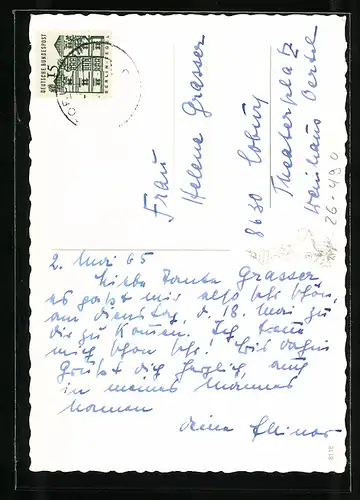 DEUTSCHE BUNDESPOST
15
BERLIN-TEGEL
Frau
Helene Grasser
8630 Coburg
Theaterplatz
Weinhaus Oertel
26-490
2. Mai 65
Liebe Tante Grasser
es paßt mir also sehr schön,
am Dienstag, d. 18. Mai zu
dir zu kommen. Ich freue
mich schon sehr! Bis dahin
Grüßt dich herzlich, auch
in meines Mannes
Namen
deine Elinor
8116